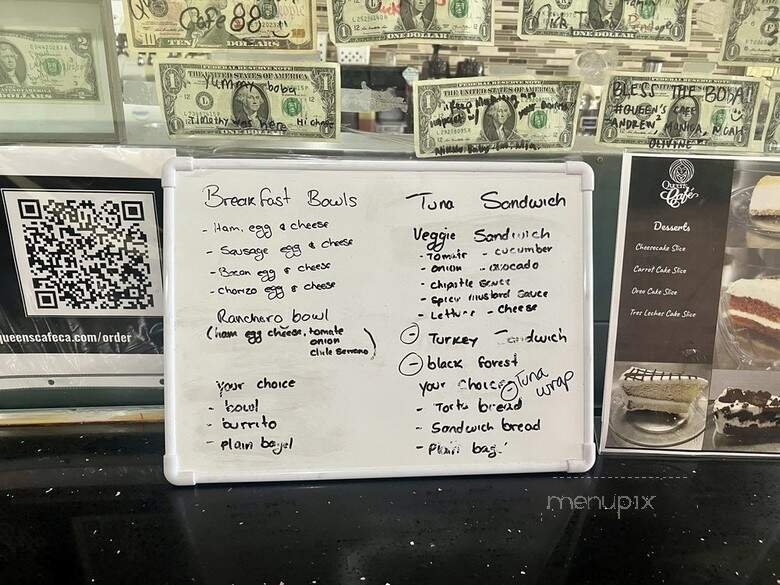 Cafe 88
TEN DOLLARS
ONE DOLLAR
FEDERAL RESERVE NOTE
THE UNITED STATES OF AMERICA
Yummy boba
Timothy was here Hi chase
THE UNITED STATES OF AMERICA
ONE DOLLAR
BLESS THE BOBA!!
#QUEEN'S CAFE
ANDREW MONICA, NOAH
OLIVINE
queenscafeca.com/order
Breakfast Bowls
- Ham, egg & cheese
- Sausage egg & cheese
- Bacon egg & cheese
- Chorizo egg & cheese
Ranchero bowl
(ham egg cheese, tomate
onion
chile serrano)
your choice
- bowl
- burrito
- plain bagel
Tuna Sandwich
Veggie Sandwich
- Tomate - cucumber
- onion - avocado
- chipotle sauce
- spicy mustard sauce
- Lettuce - cheese
- Turkey Sandwich
- black forest
your Choice
- Tuna wrap
- Torta bread
- Sandwich bread
- Plain bag
Queen's
Café
Desserts
Cheesecake Slice
Carrot Cake Slice
Oreo Cake Slice
Tres Leches Cake Slice
menupix